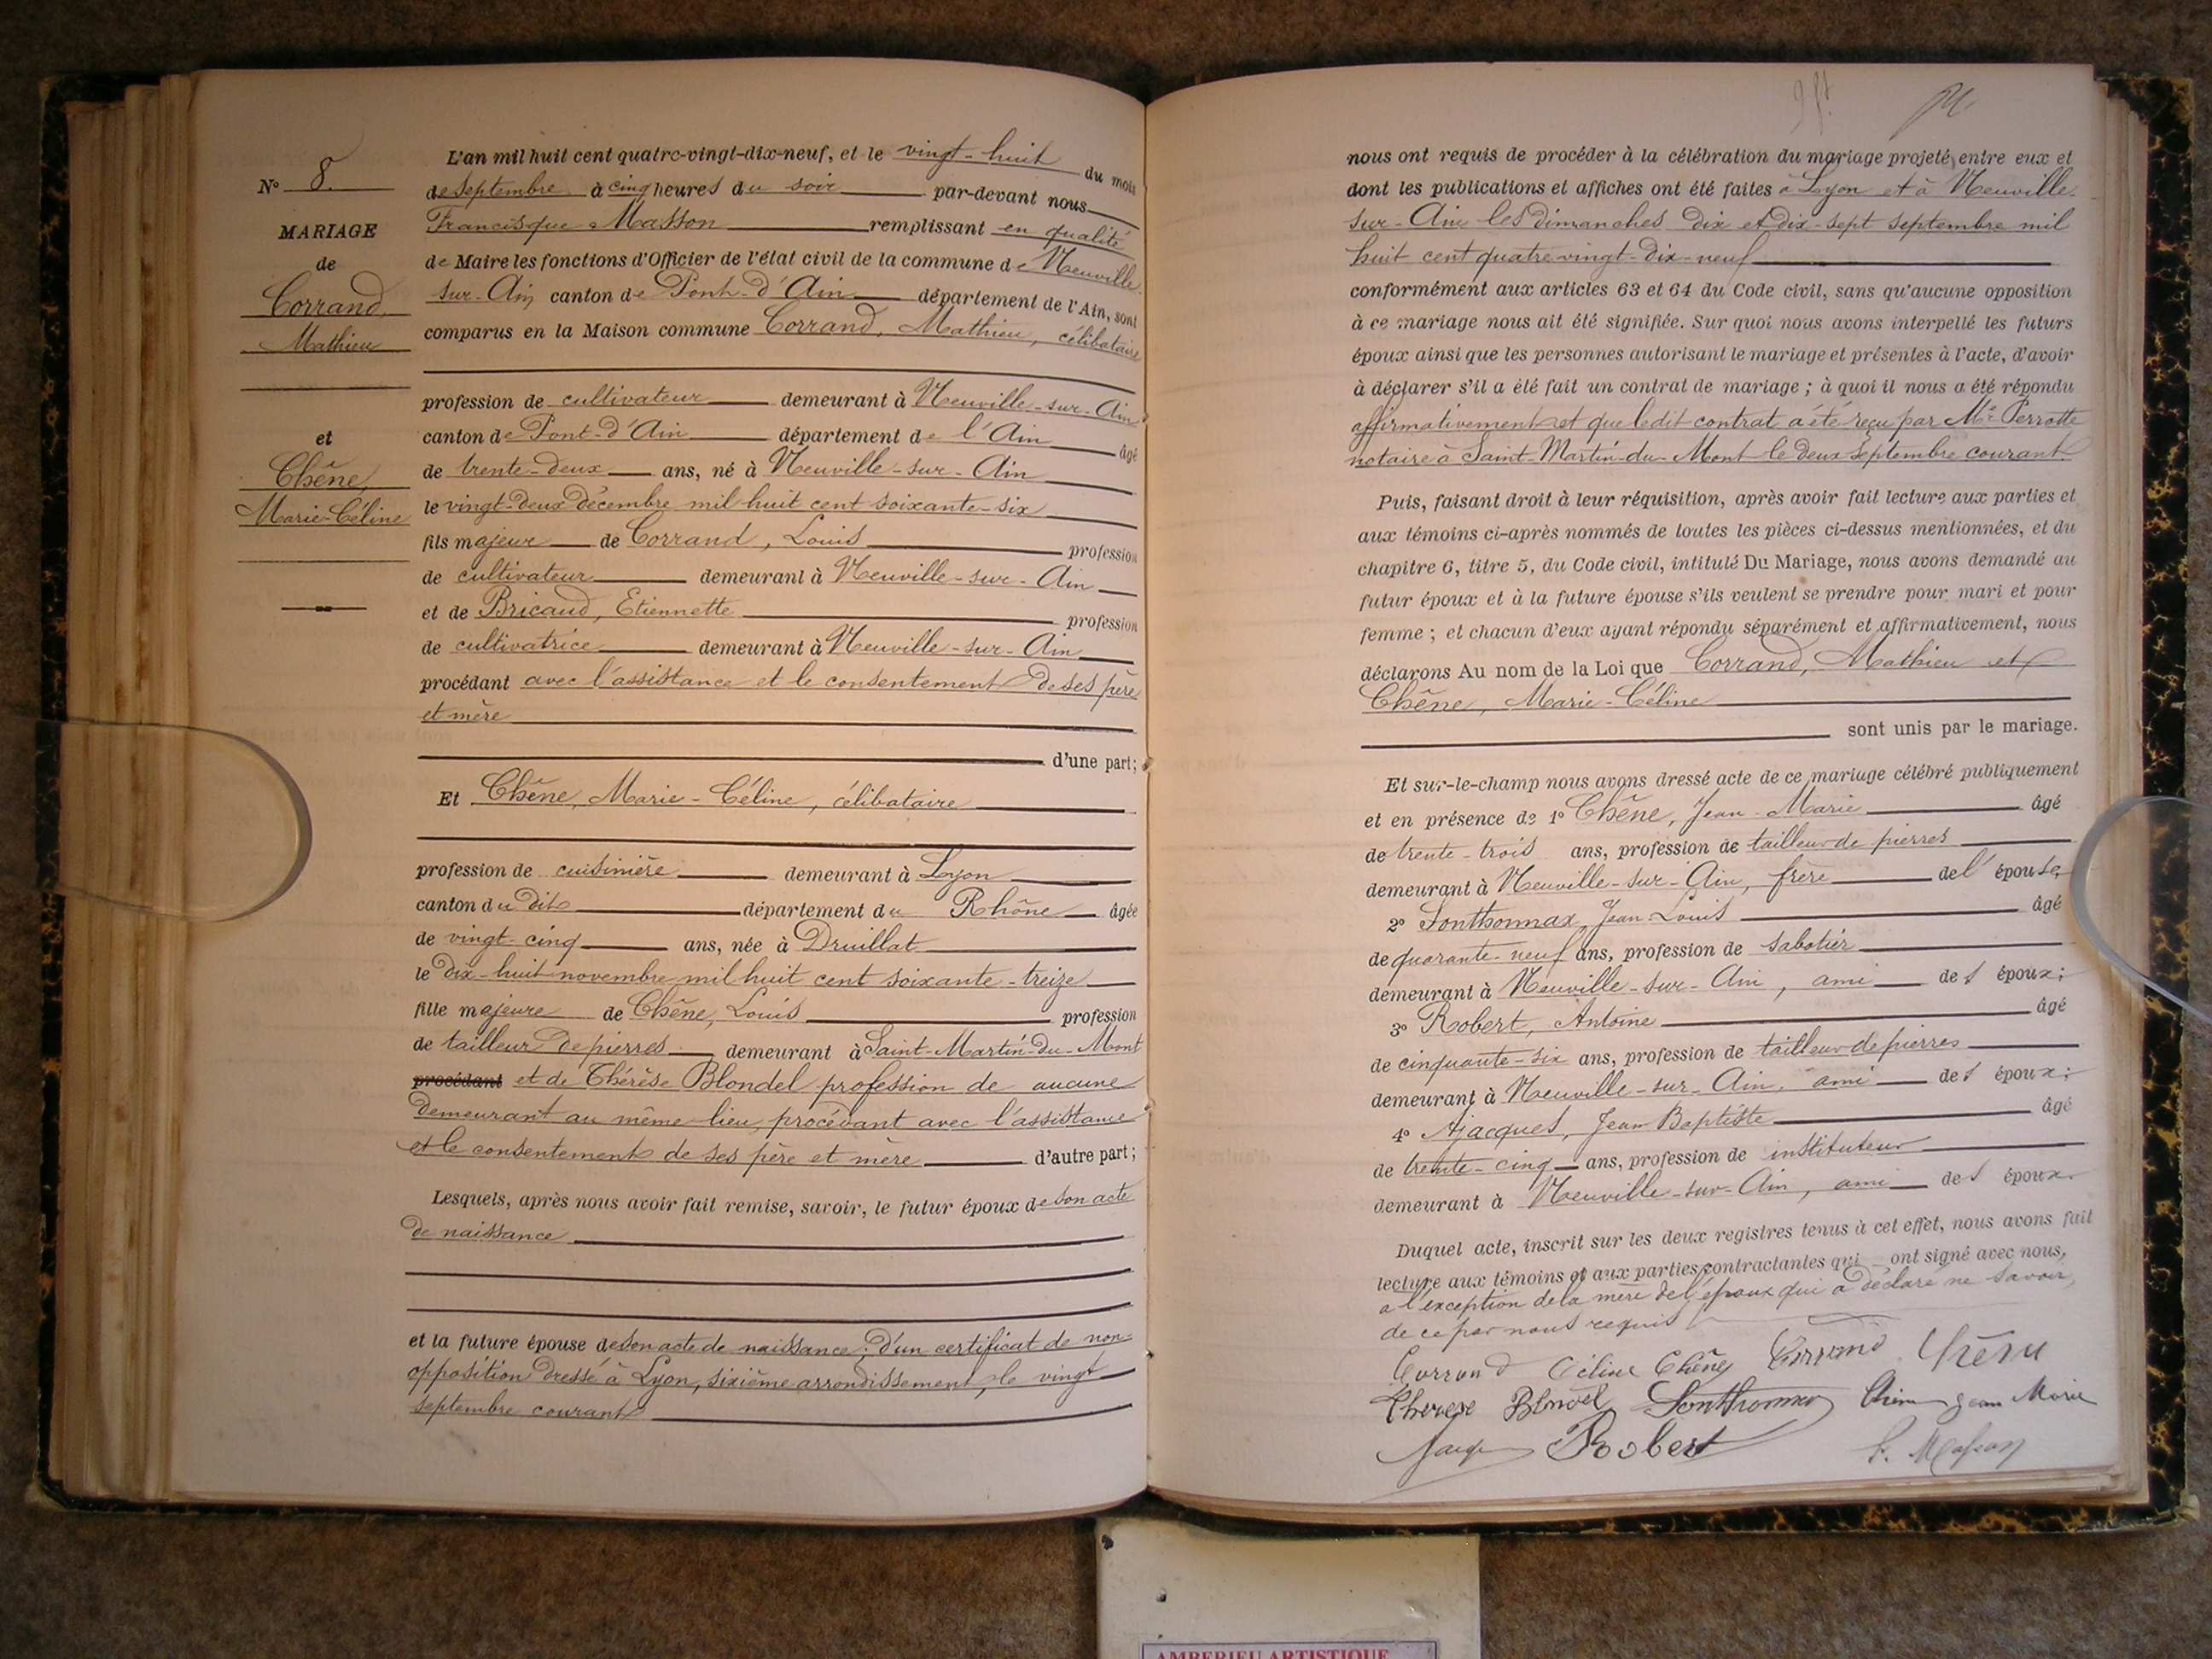 N° 8.
MARIAGE
de
Corrand
Mathieu
et
Chêne,
Marie-Céline
L'an mil huit cent quatre-vingt-dix-neuf, et le vingt-huit du mois
de Septembre à cinq heures du soir par-devant nous
Francisque Masson remplissant en qualité
de Maire les fonctions d'Officier de l'état civil de la commune de Neuville-
sur-Ain canton de Pont-d'Ain département de l'Ain, sont
comparus en la Maison commune Corrand, Mathieu, célibataire
profession de cultivateur demeurant à Neuville-sur-Ain
canton de Pont-d'Ain département de l'Ain âgé
de trente-deux ans, né à Neuville-sur-Ain
le vingt-deux Décembre mil huit cent soixante-six
fils majeur de Corrand, Louis profession
de cultivateur demeurant à Neuville-sur-Ain
et de Bricaud, Etiennette profession
de cultivatrice demeurant à Neuville-sur-Ain
procédant avec l'assistance et le consentement de ses père
et mère
d'une part;
Et Chêne, Marie-Céline, célibataire
profession de cuisinière demeurant à Lyon
canton du Dit département du Rhône âgée
de vingt-cinq ans, née à Druillat
le dix-huit novembre mil huit cent soixante-treize
fille majeure de Chêne, Louis profession
de tailleur de pierres demeurant à Saint-Martin-du-Mont
procédant et de Thérèse Blondel profession de aucune
demeurant au même lieu, procédant avec l'assistance
et le consentement de ses père et mère d'autre part;
Lesquels, après nous avoir fait remise, savoir, le futur époux de son acte
de naissance
et la future épouse de son acte de naissance; d'un certificat de non-
opposition dressé à Lyon, sixième arrondissement, le vingt
septembre courant
nous ont requis de procéder à la célébration du mariage projeté entre eux et
dont les publications et affiches ont été faites à Lyon et à Neuville-
sur-Ain les dimanches dix et dix-sept septembre mil
huit cent quatre-vingt-dix-neuf
conformément aux articles 63 et 64 du Code civil, sans qu'aucune opposition
à ce mariage nous ait été signifiée. Sur quoi nous avons interpellé les futurs
époux ainsi que les personnes autorisant le mariage et présentes à l'acte, d'avoir
à déclarer s'il a été fait un contrat de mariage; à quoi il nous a été répondu
affirmativement et que ledit contrat a été reçu par Me Perrotte
notaire à Saint-Martin-du-Mont le deux septembre courant.
Puis, faisant droit à leur réquisition, après avoir fait lecture aux parties et
aux témoins ci-après nommés de toutes les pièces ci-dessus mentionnées, et du
chapitre 6, titre 5, du Code civil, intitulé Du Mariage, nous avons demandé au
futur époux et à la future épouse s'ils veulent se prendre pour mari et pour
femme; et chacun d'eux ayant répondu séparément et affirmativement, nous
déclarons Au nom de la Loi que Corrand, Mathieu et
Chêne, Marie-Céline
sont unis par le mariage.
Et sur-le-champ nous avons dressé acte de ce mariage célébré publiquement
et en présence de 1° Chêne, Jean-Marie âgé
de trente-trois ans, profession de tailleur de pierres
demeurant à Neuville-sur-Ain, frère de l'épouse;
2° Fonthonnax, Jean Louis âgé
de quarante-neuf ans, profession de sabotier
demeurant à Neuville-sur-Ain, ami des époux;
3° Robert, Antoine âgé
de cinquante-six ans, profession de tailleur de pierres
demeurant à Neuville-sur-Ain, ami des époux;
4° Ajacques, Jean Baptiste âgé
de trente-cinq ans, profession de instituteur
demeurant à Neuville-sur-Ain, ami des époux.
Duquel acte, inscrit sur les deux registres tenus à cet effet, nous avons fait
lecture aux témoins et aux parties contractantes qui ont signé avec nous,
à l'exception de la mère de l'époux qui a déclaré ne savoir,
de ce par nous requis
Corrand Céline Chêne Corrand Chêne
Therese Blondel Fonthonnax Chêne Jean Marie
Robert F. Masson
AMBERIEU ARTISTIQUE